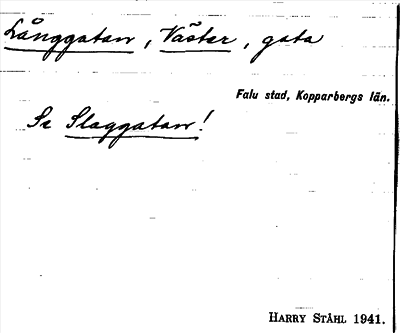 Långgatan, Väster, gata
Falu stad, Kopparbergs län.
Se Slaggatan!
HARRY STÅHL 1941.